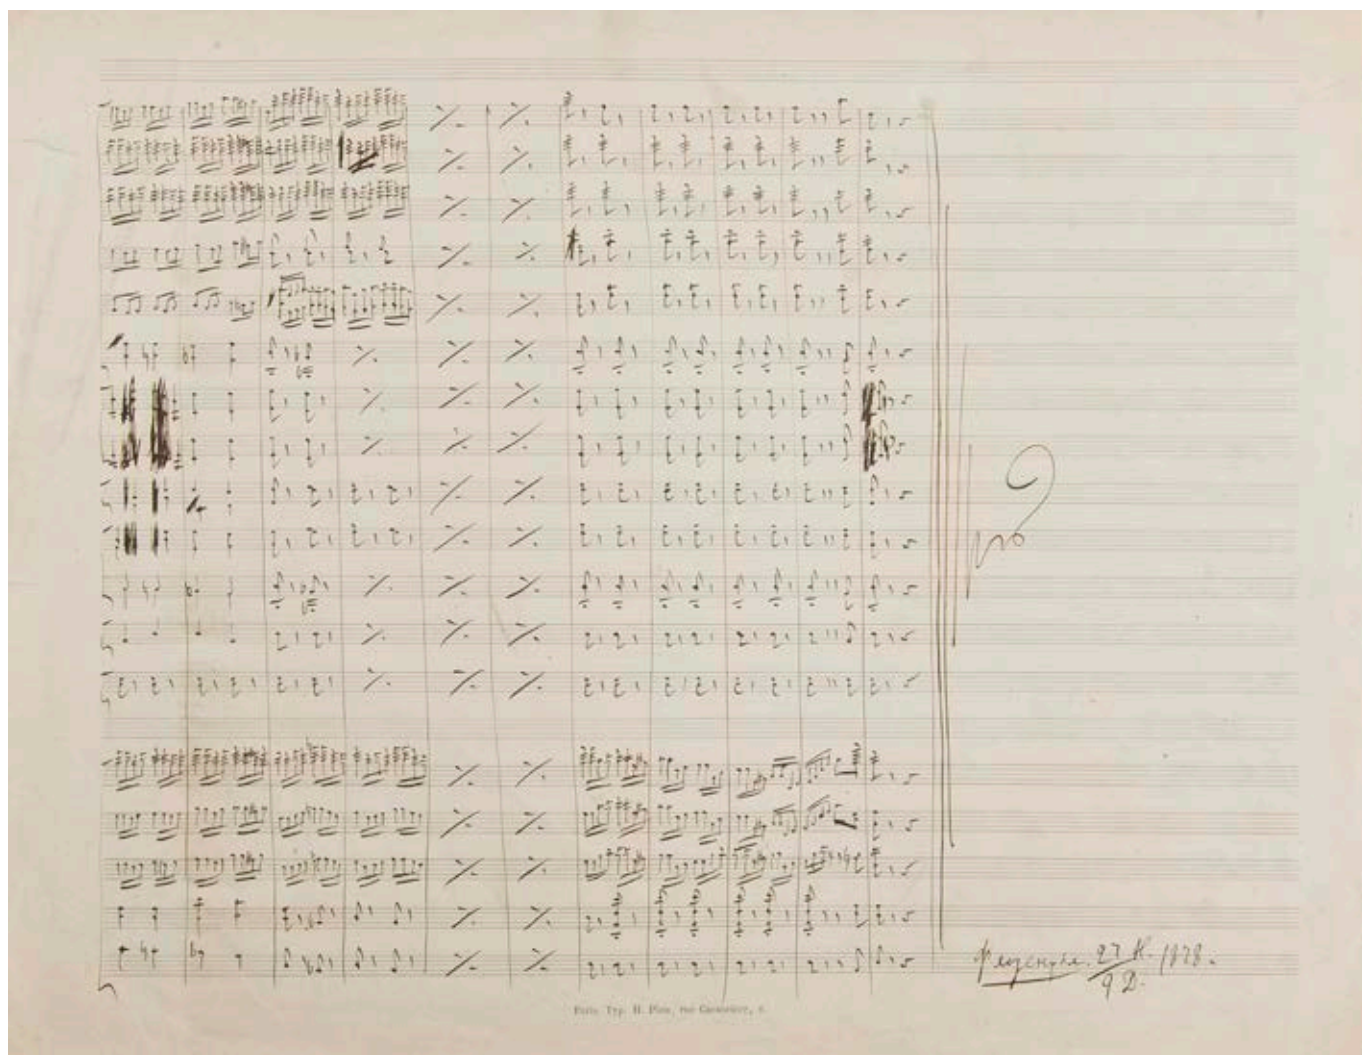 Флоренция. 27 Н. 1878.
9 Д.
Paris. Typ. H. Plon, rue Garancière, 8.